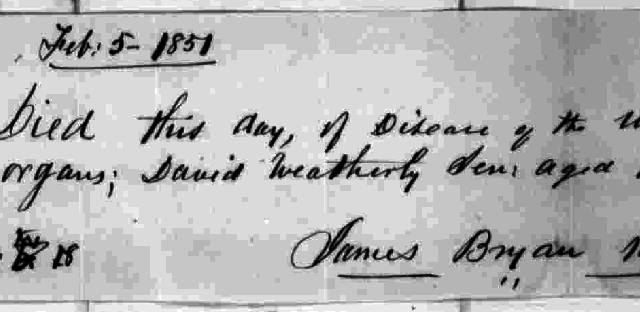 Feb: 5 - 1851
Died this day, of Disease of the
organs; David Weatherly Sen: aged
18 James Bryan